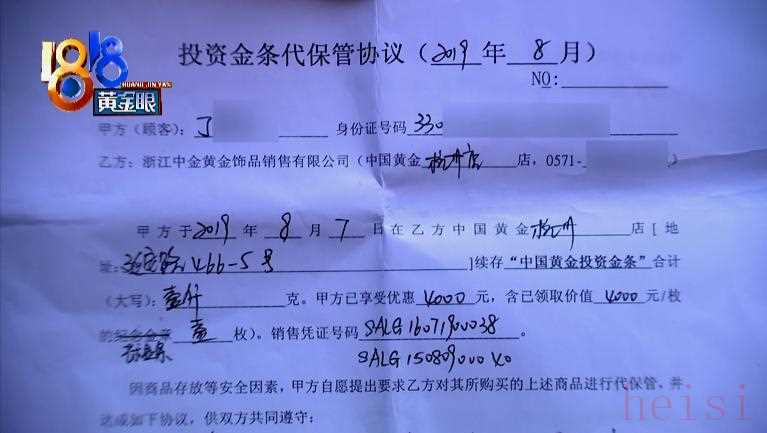 1818
HUANGJINYAN
黄金眼
投资金条代保管协议（2019 年 8 月）
NO:
甲方（顾客）： 身份证号码 330
乙方：浙江中金黄金饰品销售有限公司（中国黄金 杭州店 店，0571-
甲方于 2019 年 8 月 7 日在乙方中国黄金 杭州 店［地
址： 466-5号 ］续存“中国黄金投资金条”合计
（大写）：壹仟 克。甲方已享受优惠 4000 元，含已领取价值 4000 元/枚
的 壹 枚）。销售凭证号码 SALG16071900038 。
SALG15080900040
因商品存放等安全因素，甲方自愿提出要求乙方对其所购买的上述商品进行代保管，并
达成如下协议，供双方共同遵守：
heisi